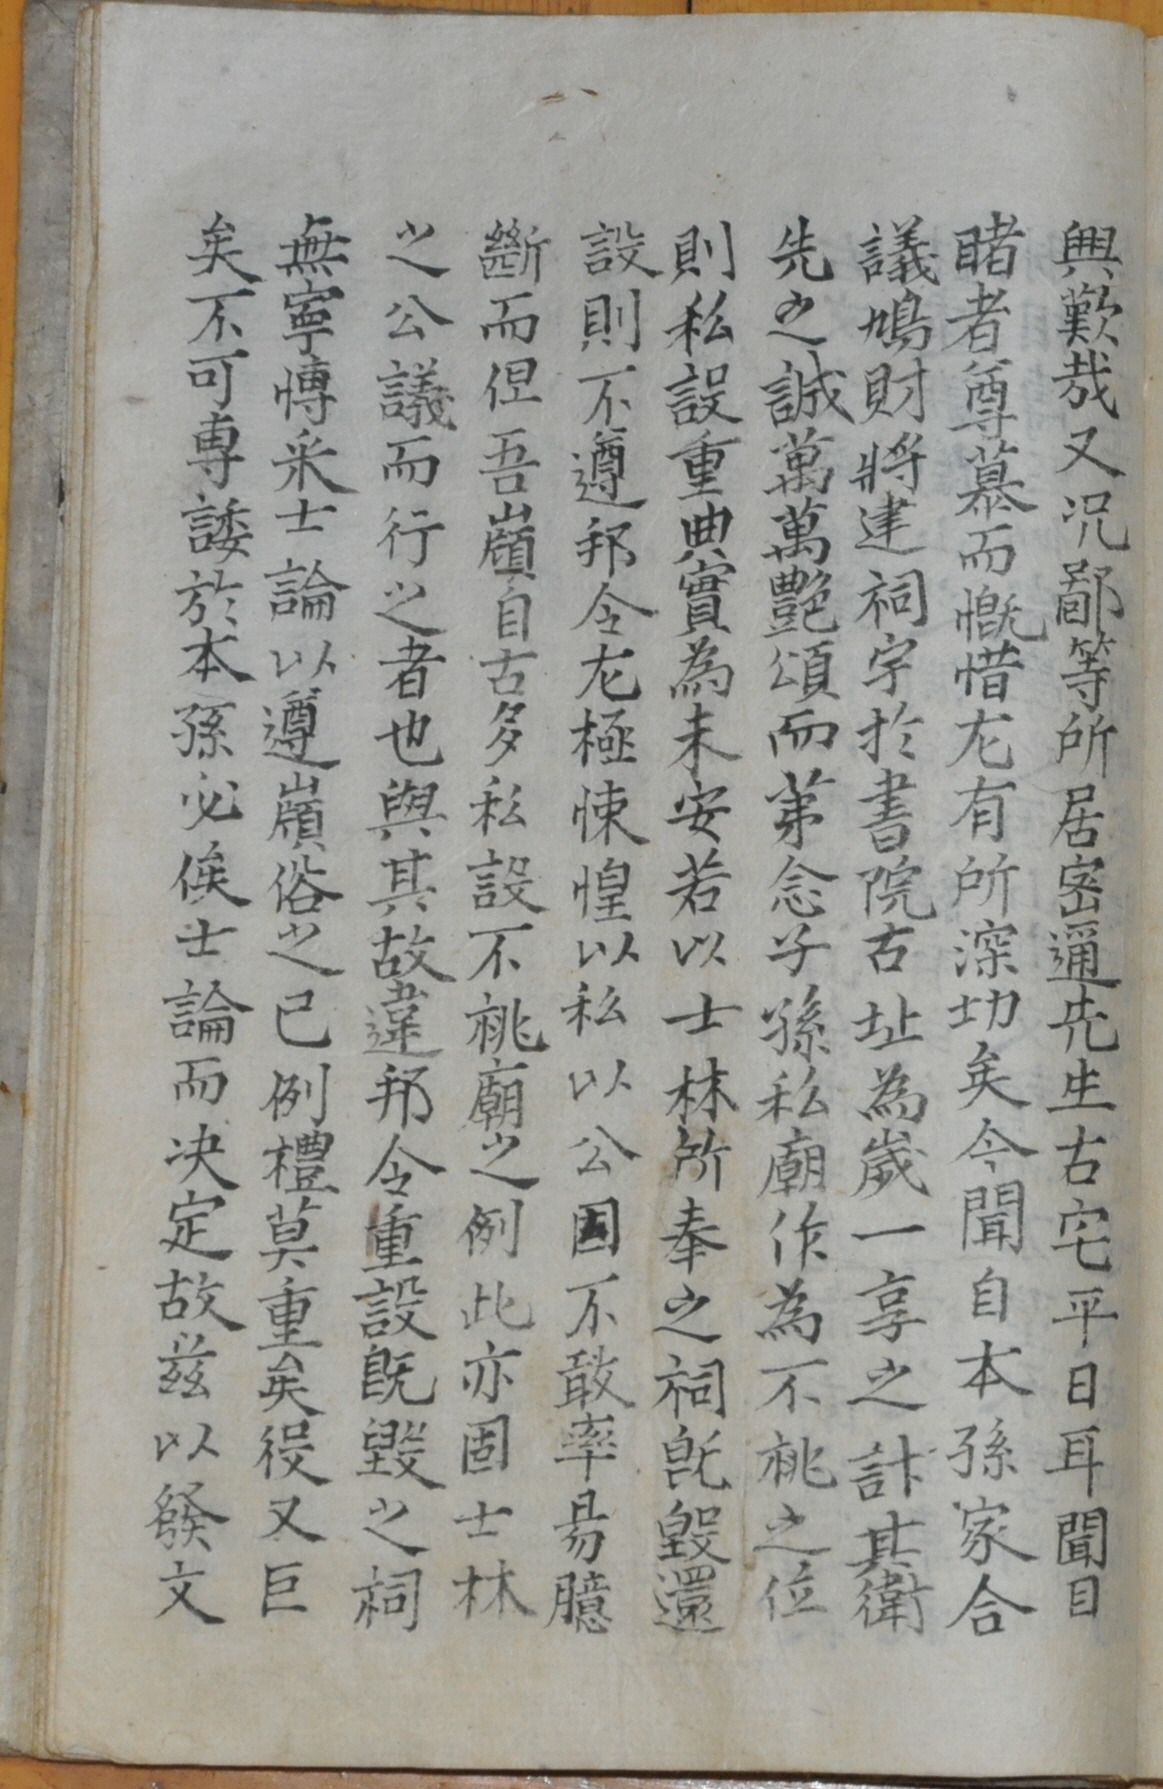 興歎哉又况鄙等所居密邇先生古宅平日耳聞目
睹者尊慕而慨惜尤有所深切矣今聞自本孫家合
議鳩財將建祠宇於書院古址為歲一享之計其衛
先之誠萬萬艶頌而苐念子孫私廟作為不祧之位
則私設重典實為未安若以士林所奉之祠既毀還
設則不遵邦令尤極悚惶以私以公固不敢率易臆
斷而但吾嶺自古多私設不祧廟之例此亦固士林
之公議而行之者也與其故違邦令重設既毀之祠
無寧博采士論以遵嶺俗之已例禮莫重矣役又巨
矣不可專諉於本孫必俟士論而决定故玆以發文